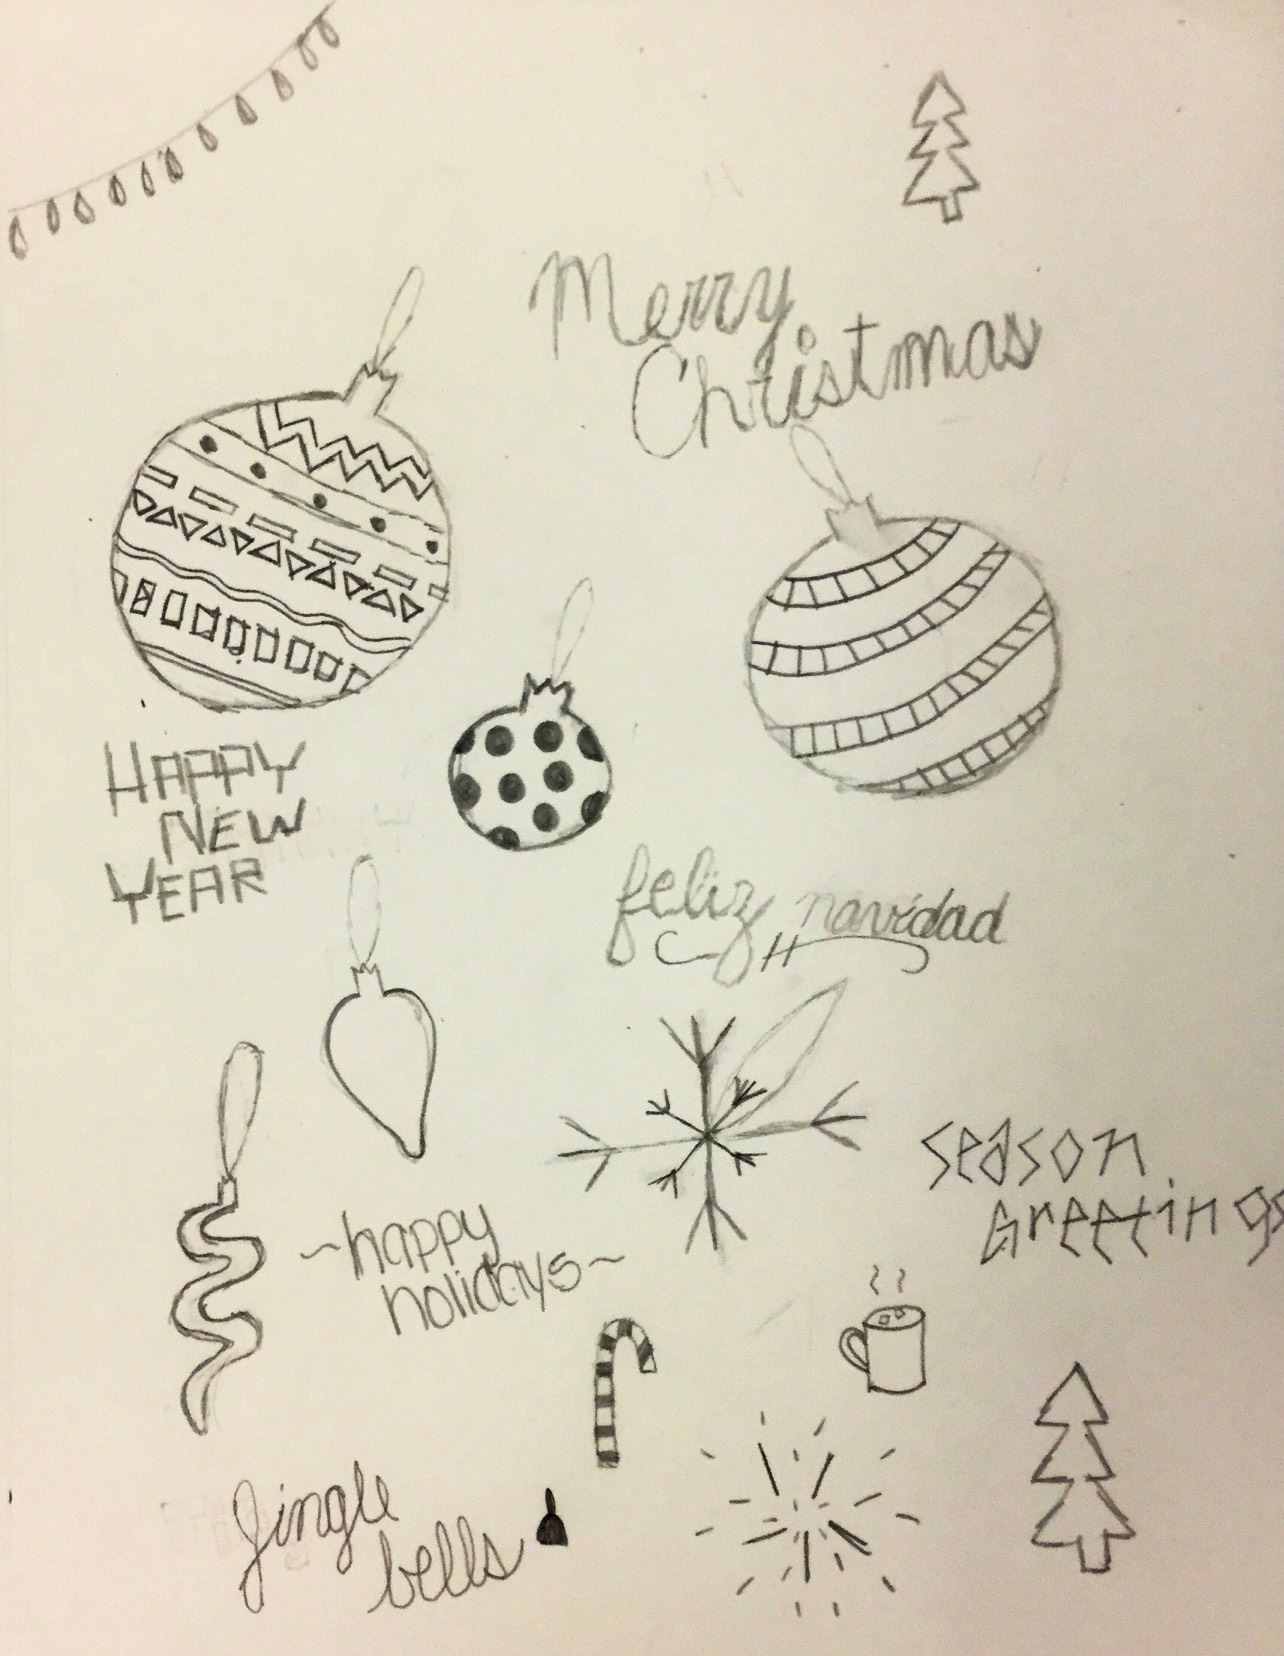 Merry
Christmas
HAPPY
NEW
YEAR
feliz navidad
season
Greetings
~happy
holidays~
Jingle
bells